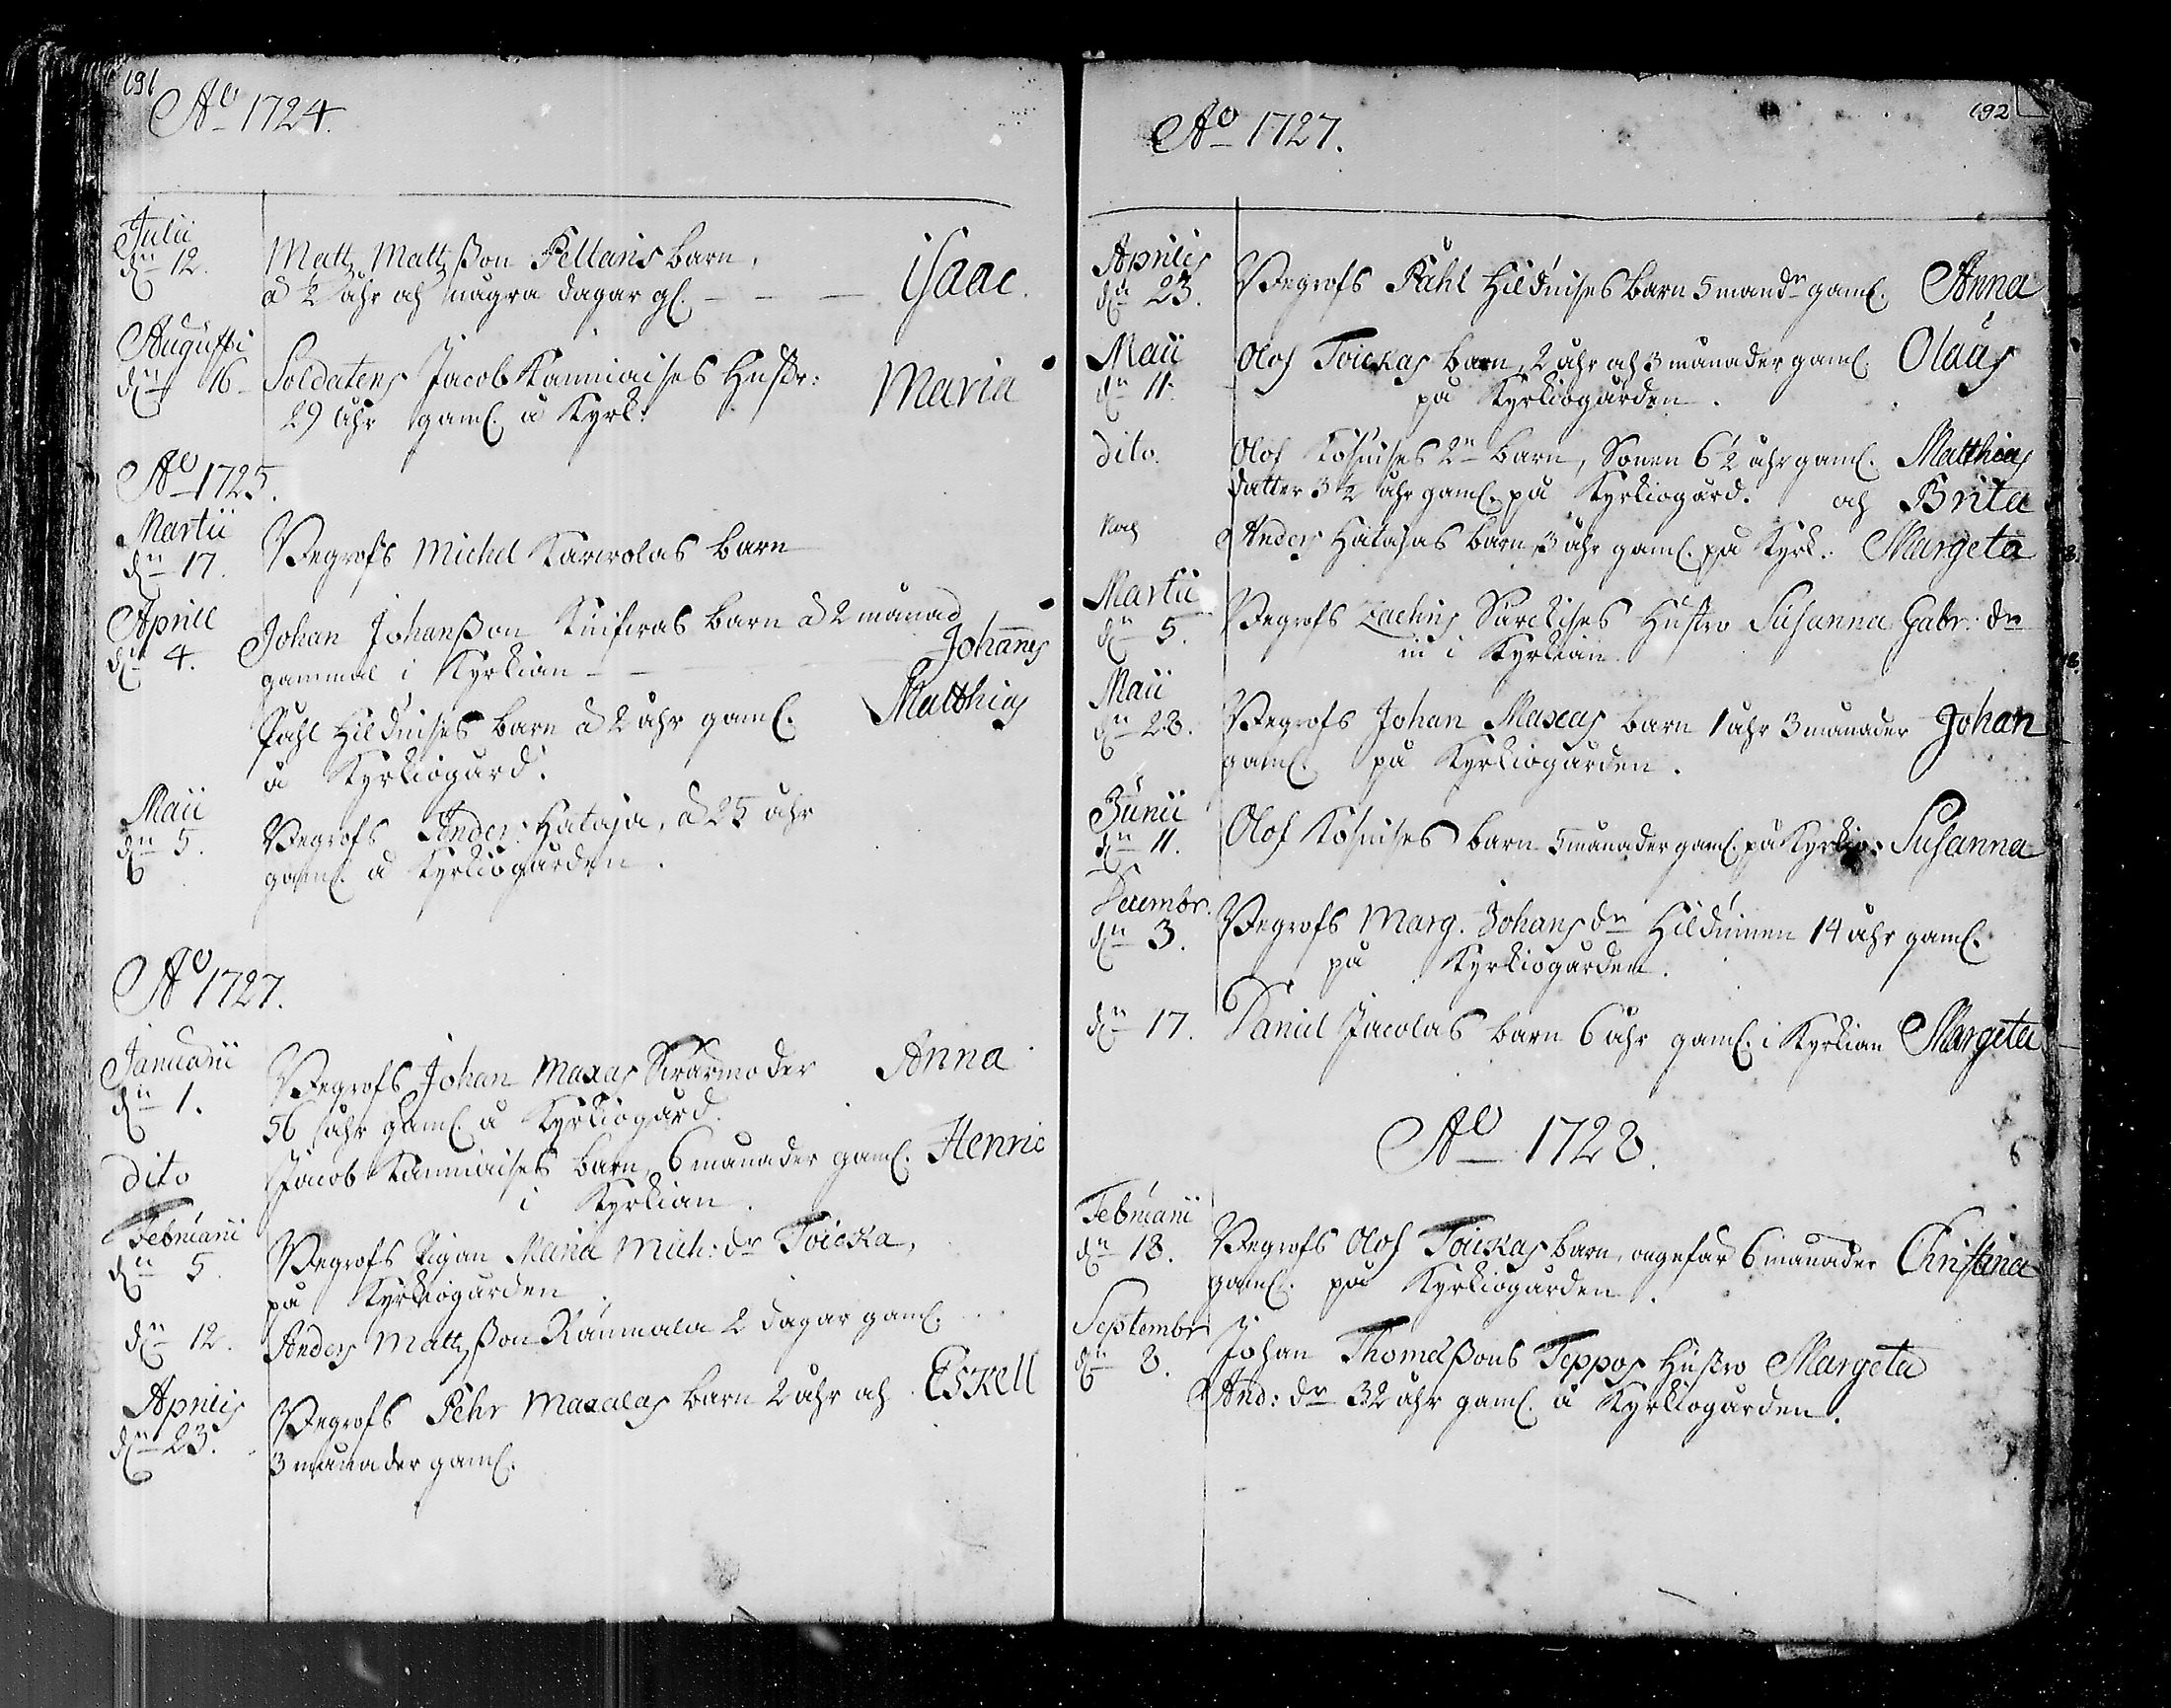 691
Ao 1724.
Julii
dn 12.
Matt Mattßon Peltaris barn,
a ½ åhr och några dagar gl. — — — Isaac.
Augusti
dn 16
Soldatens Jacob Kanniaises Hustr:
29 åhr gaml. å Kyrk: Maria
Ao 1725.
Martii
dn 17.
Begrofs Michel Karwolas barn
Aprill
dn 4.
Johan Johanßon barn a 2 månad
gammal i Kyrkian — — Johannes
Påhl Hilduises barn a 2 åhr gaml. Matthias
å Kyrkiogård.
Maii
dn 5.
Begrofs Anders Hataja, a 25 åhr
gaml. å Kyrkiogården.
Ao 1727.
Januarii
dn 1.
Begrofs Johan Maxas Swärmoder Anna
56 åhr gaml. å Kyrkiogård.
dito
Jacob Kanniaises barn, 6 månader gaml. Henric
i Kyrkian.
Februarii
dn 5.
Begrofs Pigan Maria Mich: dr Toicka,
på Kyrkiogården.
dn 12.
Anders Mattßon Rämmala 2 dagar gaml.
Aprilis
dn 23.
Begrofs Pehr Maxalas barn 2 åhr och Eskell
3 månader gaml.
692
Ao 1727.
Aprilis
dn 23.
Begrofs Påhl Hilduises barn 5 mandr gaml. Anna
Maii
dn 11.
Olof Toickas barn, 2 åhr och 3 månader gaml. Olaus
på Kyrkiogården.
dito.
Olof Kosuises 2n barn, Sonen 6 ½ åhr gaml. Matthias
datter 3 ½ åhr gaml. på Kyrkiogård. och Brita
Noch
Anders Hatajas barn, 3 åhr gaml. på Kyrk.: Margeta
Martii
dn 5.
Begrofs Zachris Särckises Hustro Susanna Gabr: dr
in i Kyrkian.
Maii
dn 28.
Begrofs Johan Maxas barn 1 åhr 3 månader Johan
gaml. på Kyrkiogården.
Junii
dn 11.
Olof Kosuises barn 5 månader gaml. på Kyrkio: Susanna
Decembr.
dn 3.
Begrofs Marg. Johans dr Hilduinen 14 åhr gaml.
på Kyrkiogården.
dn 17.
Daniel Jacolas barn 6 åhr gaml. i Kyrkian Margeta
Ao 1728.
Februarii
dn 18.
Begrofs Olof Toickas barn, ongefär 6 månader Christina
gaml. på Kyrkiogården.
Septembr
dn 8.
Johan Thomaßons Teppos Hustro Margeta
And: dr 32 åhr gaml. å Kyrkiogården.